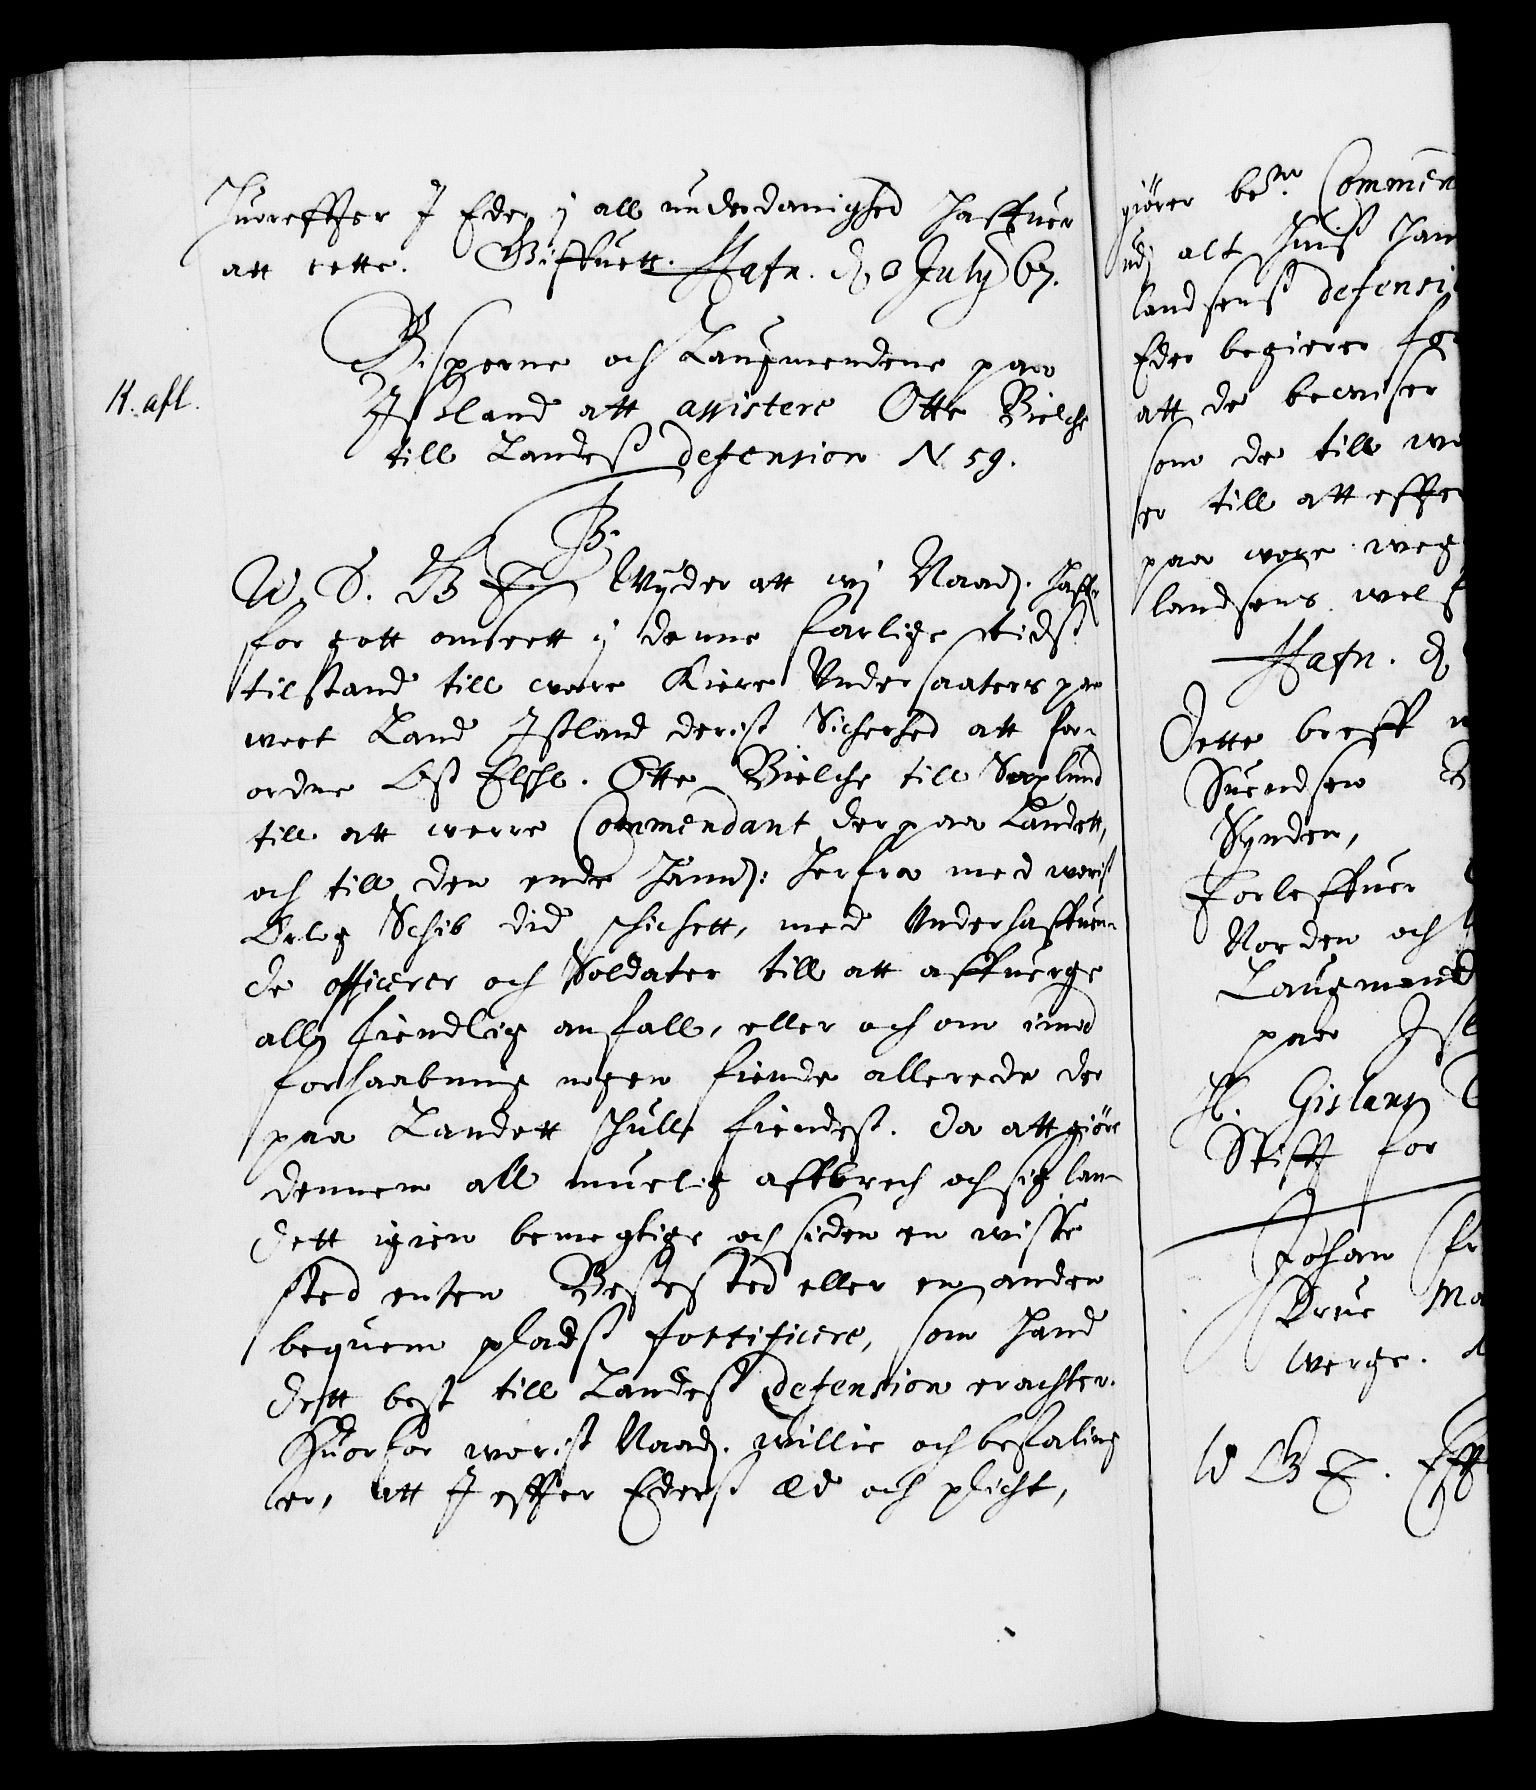 Huoreffter J Eder j all underdanighed haffuer
att rette. Giffuett. Hafn. d 8 July 67.
Bisperne och Laugmendene paa
Jsland att assistere Otte Bielche
till Landeß defension N. 59.
K. afl.
W. S. G T Wyder att wj Naad. haffr
for gott anseett j denne farlige tidß
tilstand till wore Kiere Undersaatters paa
wort Land Jßland deriß Sicherhed att for-
ordne Oß Elschl. Otte Bielche till
till att werre Commendant der paa Landett,
och till den ende hannd: herfra med woriß
Orlog Schib did schichett, med Underhaffuen-
de officerer och Soldater till att affuerge
all fiendlig anfall, eller och om imod
forhaabning nogen fiende allerede der
paa Landett schulle findeß. da att giøre
dennem all muelig affbrech och sig lan-
dett igien bemegtige och siden en wisse
sted enten Bessested eller en anden
bequem pladß fortificere, som hand
dett best till Landeß defension erachter.
Huorfor woriß Naad. willie och befaling
er, att J effter Ederß æd och plicht,
giører bete. Commen
udj alt huiß han
landsenß defensi
Eder begierer
att de beuiser
som de till
er till att effter
paa wore weg
landsens
Hafn. d
Dette breff
Suendsen
Synden,
Forleffuer
Norden och
Laugmand
paa Jsl
H. Gislau
Stifft for
Johan
Drue Ma
werge.
W G T. Eff